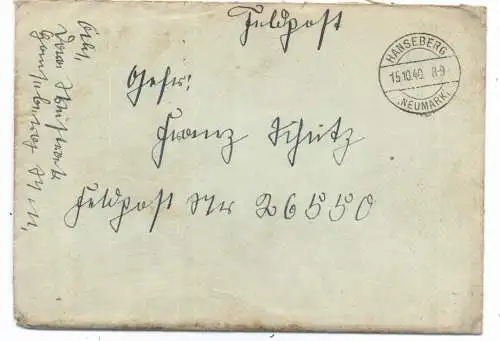 Feldpost
HANSEBERG
15.10.40. 8-9
(NEUMARK)
Gefr:
Franz Schütz
Feldpost Nr 26550
Abs,
Hanseberg N/M,